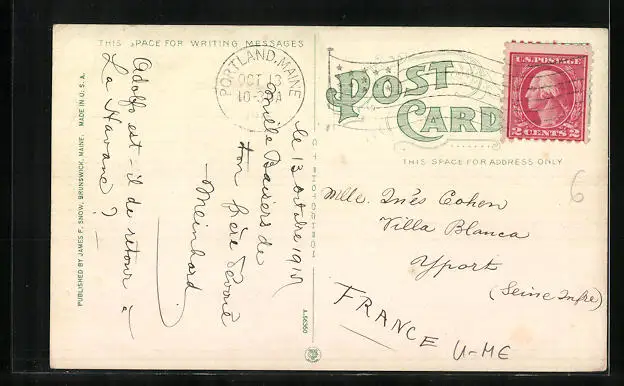 THIS SPACE FOR WRITING MESSAGES
PORTLAND, MAINE
OCT 13
10-30A
POST
CARD
U.S. POSTAGE
2 CENTS 2
THIS SPACE FOR ADDRESS ONLY
Mlle. Inès Cohen
Villa Blanca
Yport
(Seine Infre)
FRANCE
U-ME
6
le 13 Octobre 191
Mille Baisers de
ton frère dévoué
Meinhard
Adolfo est-il de retour à
La Havane ?
PUBLISHED BY JAMES F. SNOW, BRUNSWICK, MAINE. MADE IN U. S. A.
A-56360